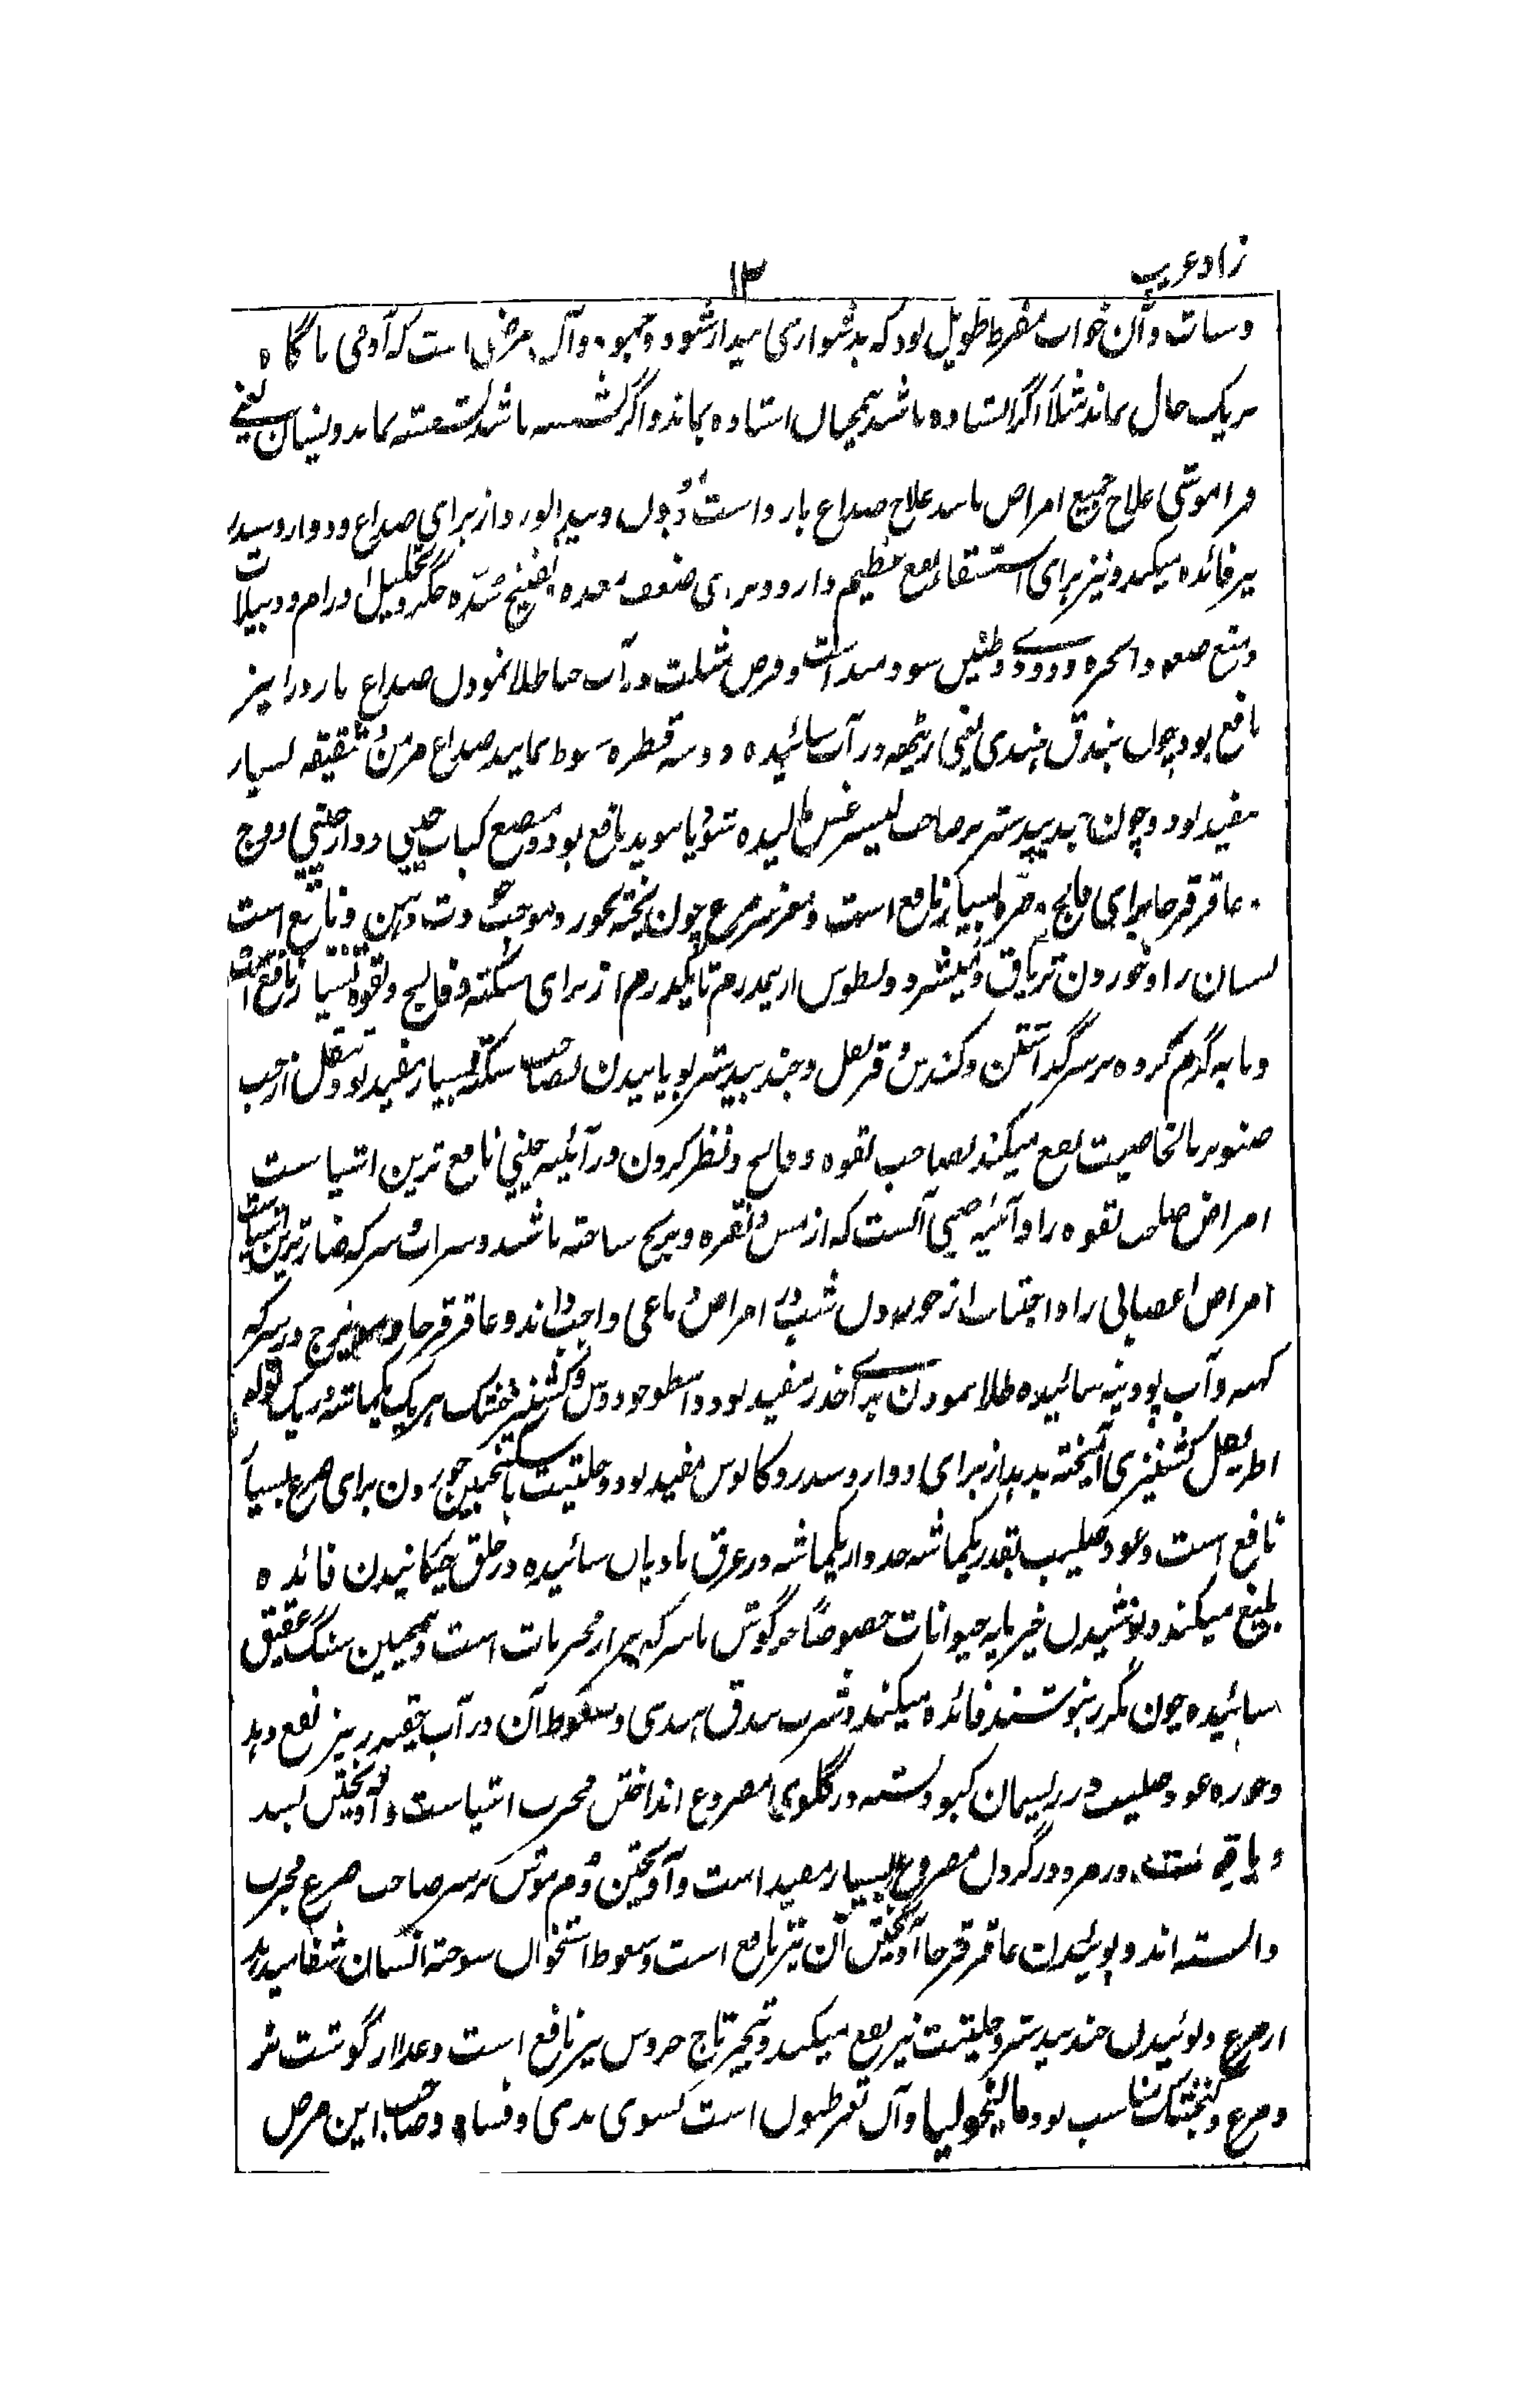 زاد غریب
۱۳
و سبات و آن خواب مفرط طویل بود که بدشواری بیدار شود و جمود و آن مرضی است که آدمی ناگاه
بریک حال بماند مثلاً اگر استاده باشد همچنان استاده بماند و اگر نشسته باشد نشسته بماند و نسیان یعنی
فراموشی علاج جمیع امراض باسد علاج صداع بارد است و سدر الورد از برای صداع و دوار و سدر
نیز فائده میکند و نیز برای استسقا نفع عظیم دارد و برای ضعف معده و تفتیح سده جگر و تحلیل اورام و دبیلات
و منع صعود ابخره و دوی و طنین سودمند است و قرص مثلث در آب حنا طلا نمودن صداع بارد را نیز
نافع بود چون بندق هندی یعنی ریٹھه در آب سائیده دو سه قطره سعوط نمایند صداع مزمن و شقیقه بسیار
مفید بود و چون جندبیدستر بر صاحب لیثرغس مالیده شود یا بوید نافع بود و مضغ کباب چینی و دارچینی و وج
و عاقرقرحا برای فالج و غیره بسیار نافع است و مغز سر مرغ چون پخته بخورد موجب حدت ذهن و نافع است
نسیان را و خوردن تریاق و مثرودیطوس از نیمدرم تا یکدرم از برای سکته و فالج و لقوه بسیار نافع است
و تابه گرم کرده بر سر گذاشتن و کندش و قرنفل و جندبیدستر بویانیدن بصاحب سکته بسیار مفید بود و تنقل از حب
صنوبر بالخاصیت نفع میکند بصاحب لقوه و فالج و نظر کردن در آئینه چینی نافع ترین اشیاست
امراض صاحب لقوه را و آئینه چینی آنست که از مس و نقره و برنج ساخته باشند و شراب و سرکه ضارترین اشیاست
امراض اعصابی را و اجتناب از خوردن شب در امراض دماغی واجب دانند و عاقرقرحا و میویزج در سرکه
کهنه و آب پودینه سائیده طلا نمودن برای خدر مفید بود و اسطوخودوس و کشنیز خشک هر یک یکماشه در یک توله
اطریفل کشنیزی آمیخته بدهند از برای دوار و سدر و کابوس مفید بود و حلتیت با سکنجبین خوردن برای صرع بسیار
نافع است و عود صلیب بقدر یکماشه جدوار یکماشه در عرق بادیان سائیده در حلق چکانیدن فائده
بلیغ میکند و نوشیدن خیر مایه حیوانات خصوصاً خرگوش با سرکه نیز از مجربات است و همچنین سنگ عقیق
سائیده چون مکرر بنوشند فائده میکند و شرب بندق هندی و سعوط آن در آب چقندر نیز نفع دهد
و مهره عود صلیب در ریسمان کبود بسته در گلوی مصروع انداختن مجرب اشیاست و آویختن بسد
و یاقوت و زمرد در گردن مصروع بسیار مفید است و آویختن دم موش بر سر صاحب صرع مجرب
دانسته اند و بوئیدن عاقرقرحا و آویختن آن نیز نافع است و سعوط استخوان سوخته انسان شفا میدهد
از صرع و بوئیدن جندبیدستر و حلتیت نیز نفع میکند و تبخیر تاج خروس نیز نافع است و غذا از گوشت بز
و مرغ و کنجشک مناسب بود و مالیخولیا و آن تغیر ظنون است بسوی بدی و فساد و صاحب این مرض